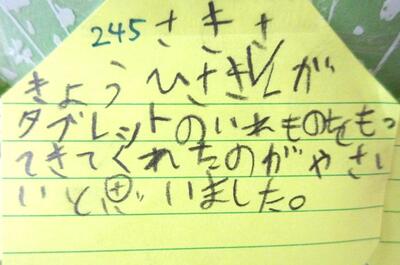 245 さきさ
きょうひさきくんが
タブレットのいれものをもっ
てきてくれたのがやさし
いとおもいました。